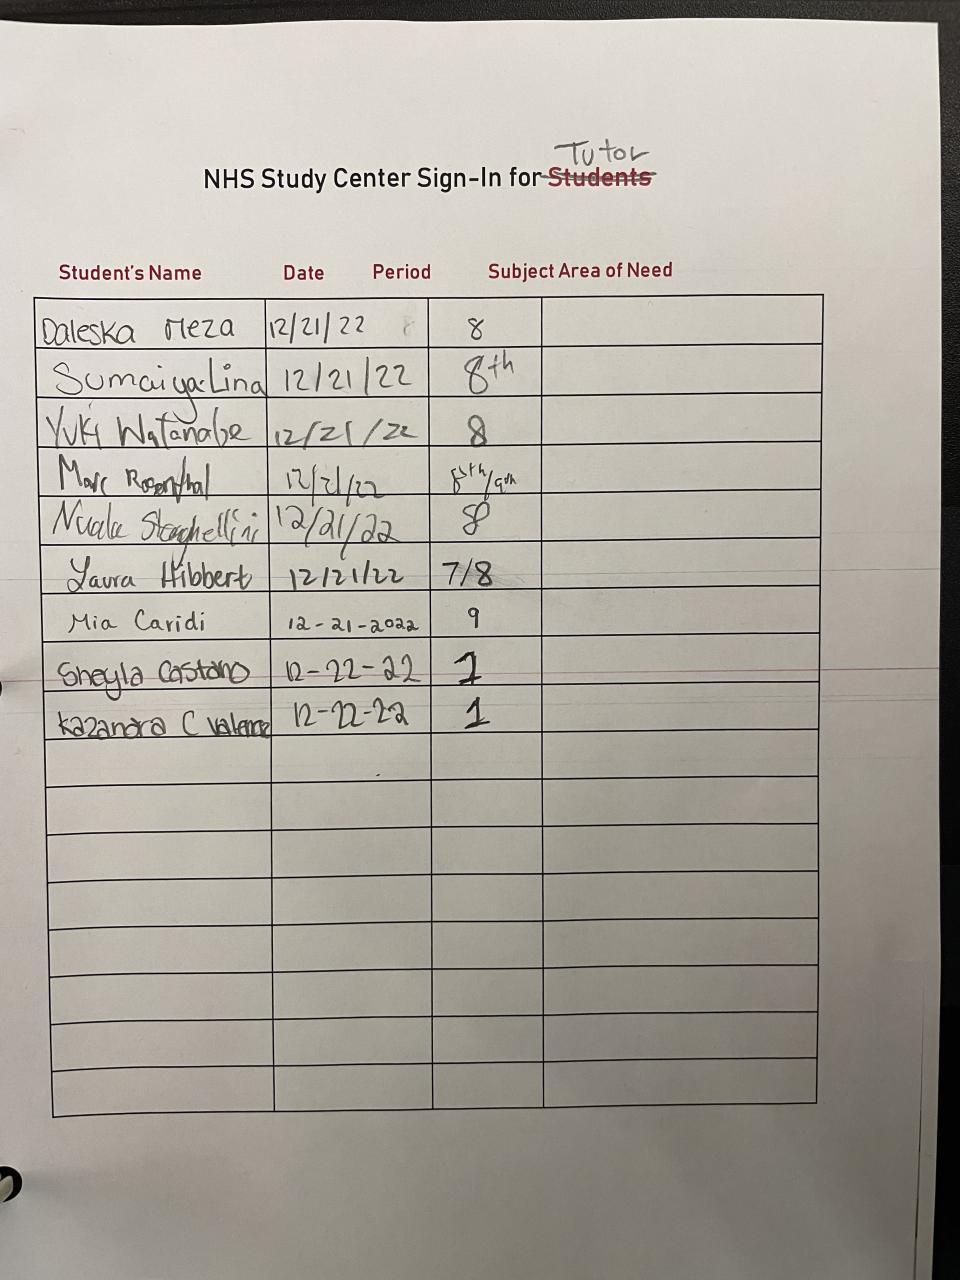 Tutor
NHS Study Center Sign-In for Students
Student's Name Date Period Subject Area of Need
Daleska Meza 12/21/22 8
Sumaiya Lina 12/21/22 8th
Yuki Watanabe 12/21/22 8
Marc Rosenthal 12/21/22 8th/9th
12/21/22 8
Laura Hibbert 12/21/22 7/8
Mia Caridi 12-21-2022 9
Sheyla Castano 12-22-22 1
Kazandra C 12-22-22 1